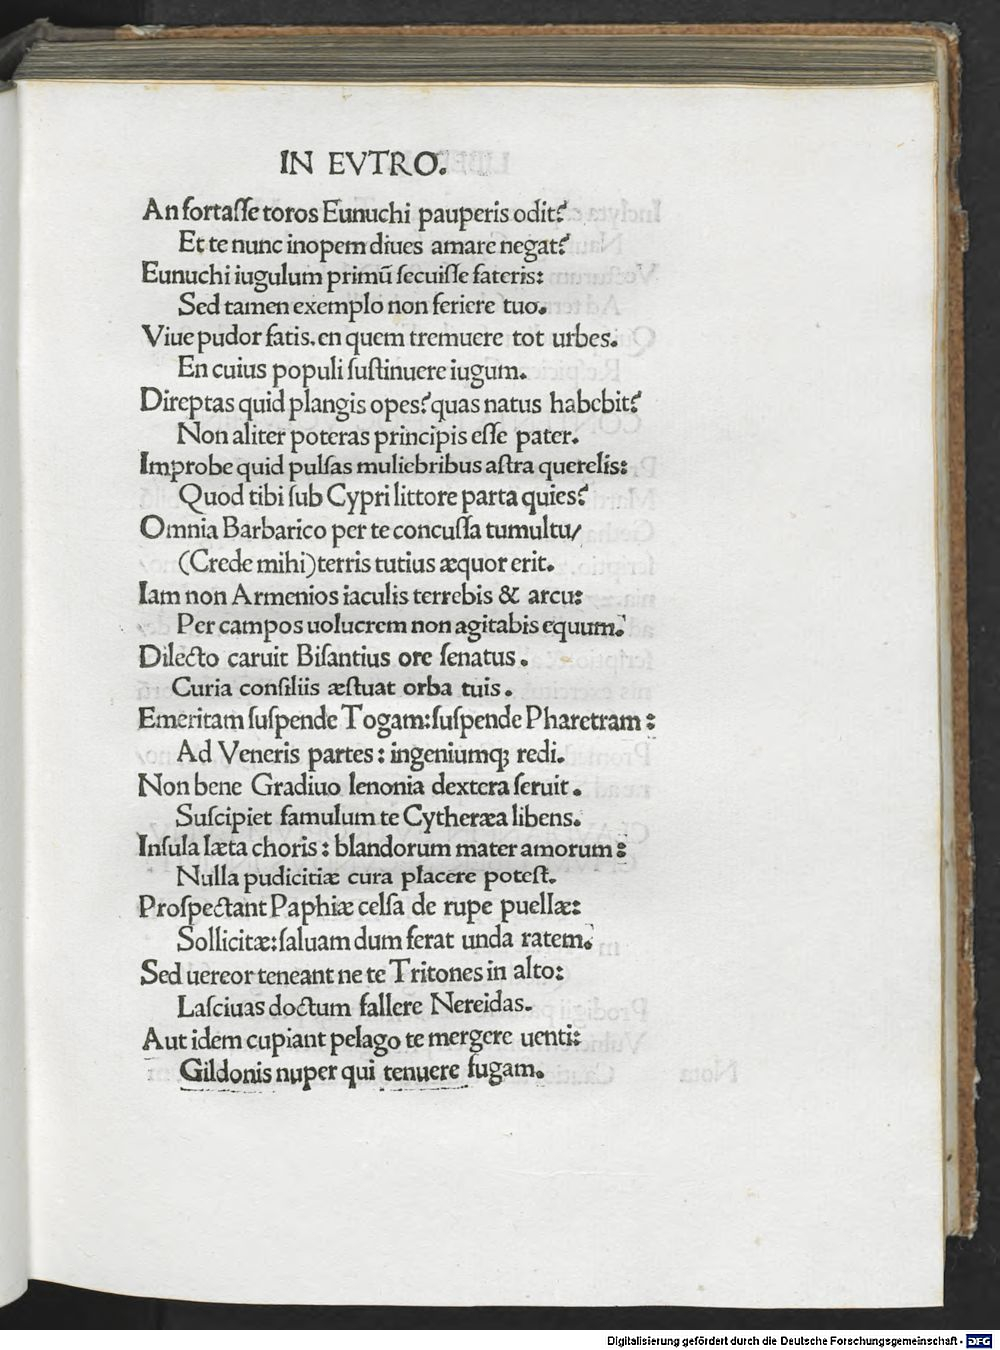 IN EVTRO.
An fortaſſe toros Eunuchi pauperis odit?
Et te nunc inopem diues amare negat?
Eunuchi iugulum primū ſecuiſſe fateris:
Sed tamen exemplo non feriere tuo.
Viue pudor fatis. en quem tremuere tot urbes.
En cuius populi ſuſtinuere iugum.
Direptas quid plangis opes? quas natus habebit?
Non aliter poteras principis eſſe pater.
Improbe quid pulſas muliebribus aſtra querelis:
Quod tibi ſub Cypri littore parta quies?
Omnia Barbarico per te concuſſa tumultu/
(Crede mihi) terris tutius æquor erit.
Iam non Armenios iaculis terrebis & arcu:
Per campos uolucrem non agitabis equum.
Dilecto caruit Biſantius ore ſenatus.
Curia conſiliis æſtuat orba tuis.
Emeritam ſuſpende Togam: ſuſpende Pharetram:
Ad Veneris partes: ingeniumq; redi.
Non bene Gradiuo lenonia dextera ſeruit.
Suſcipiet famulum te Cytheræa libens.
Inſula læta choris: blandorum mater amorum:
Nulla pudicitiæ cura placere poteſt.
Proſpectant Paphiæ celſa de rupe puellæ:
Sollicitæ: ſaluam dum ferat unda ratem.
Sed uereor teneant ne te Tritones in alto:
Laſciuas doctum fallere Nereidas.
Aut idem cupiant pelago te mergere uenti:
Gildonis nuper qui tenuere fugam.
Digitalisierung gefördert durch die Deutsche Forschungsgemeinschaft - DFG